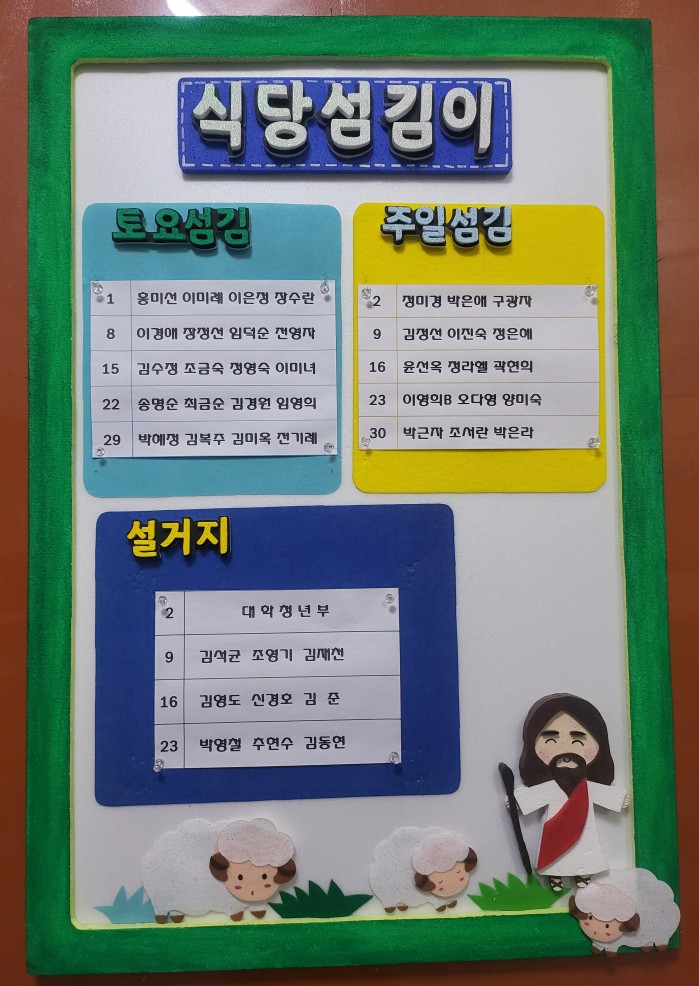 식당섬김이
토요섬김
1 홍미선 이미례 이은정 장수란
8 이경애 장정선 임덕순 전영자
15 김수정 조금숙 정영숙 이미녀
22 송명순 최금순 김경원 임영희
29 박혜정 김복주 김미옥 전기례
주일섬김
2 정미경 박은애 구광자
9 김정선 이진숙 정은혜
16 윤선옥 정라헬 곽현희
23 이영희B 오다영 양미숙
30 박근자 조서란 박은라
설거지
2 대학청년부
9 김석균 조영기 김재천
16 김영도 신경호 김 준
23 박영철 추현수 김동현